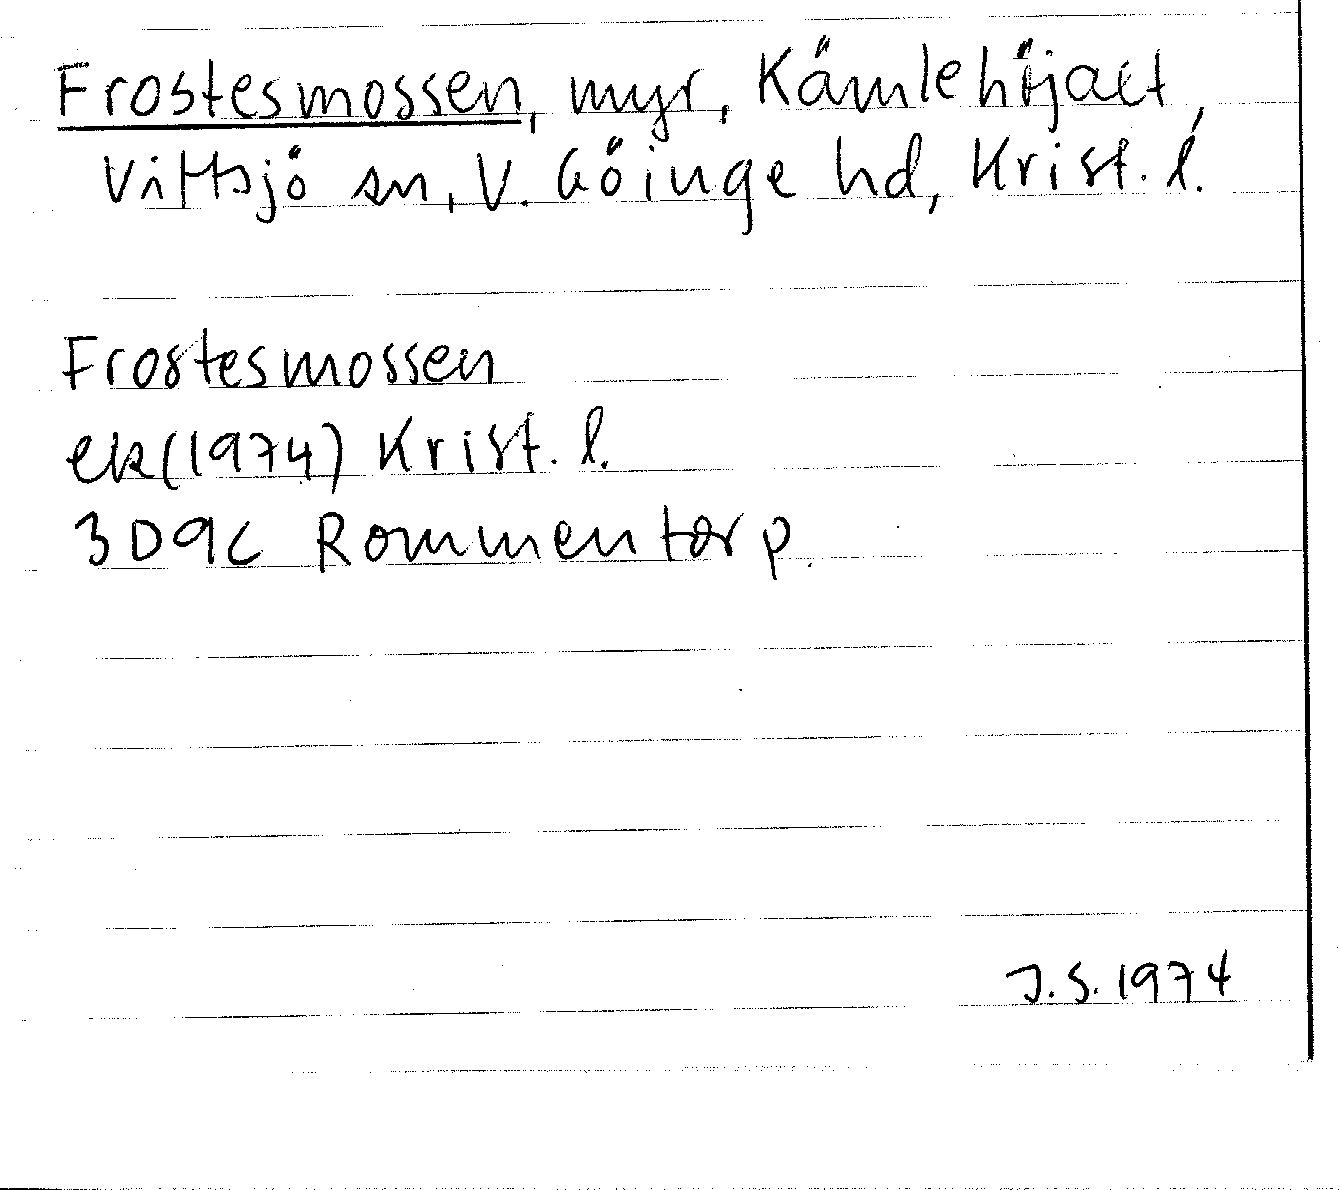 Frostesmossen, myr, Kämlehöjatt,
Vittsjö sn, V. Göinge hd, Krist. l.
Frostesmossen
ek(1974) Krist. l.
3D9c Rommentorp.
J.S. 1974